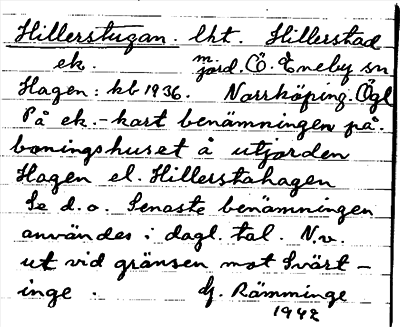 Hillerstugan. lht. Hillerstad
ek. m. jord. Ö. Eneby sn
Hagen: kb 1936. Norrköping. Ögl
På ek.-kart benämningen på
boningshuset å utjorden
Hagen el. Hillerstahagen
Se d. o. Senaste benämningen
användes i dagl. tal. N.v.
ut vid gränsen mot Svärt-
inge. dj. Rämminge
1942